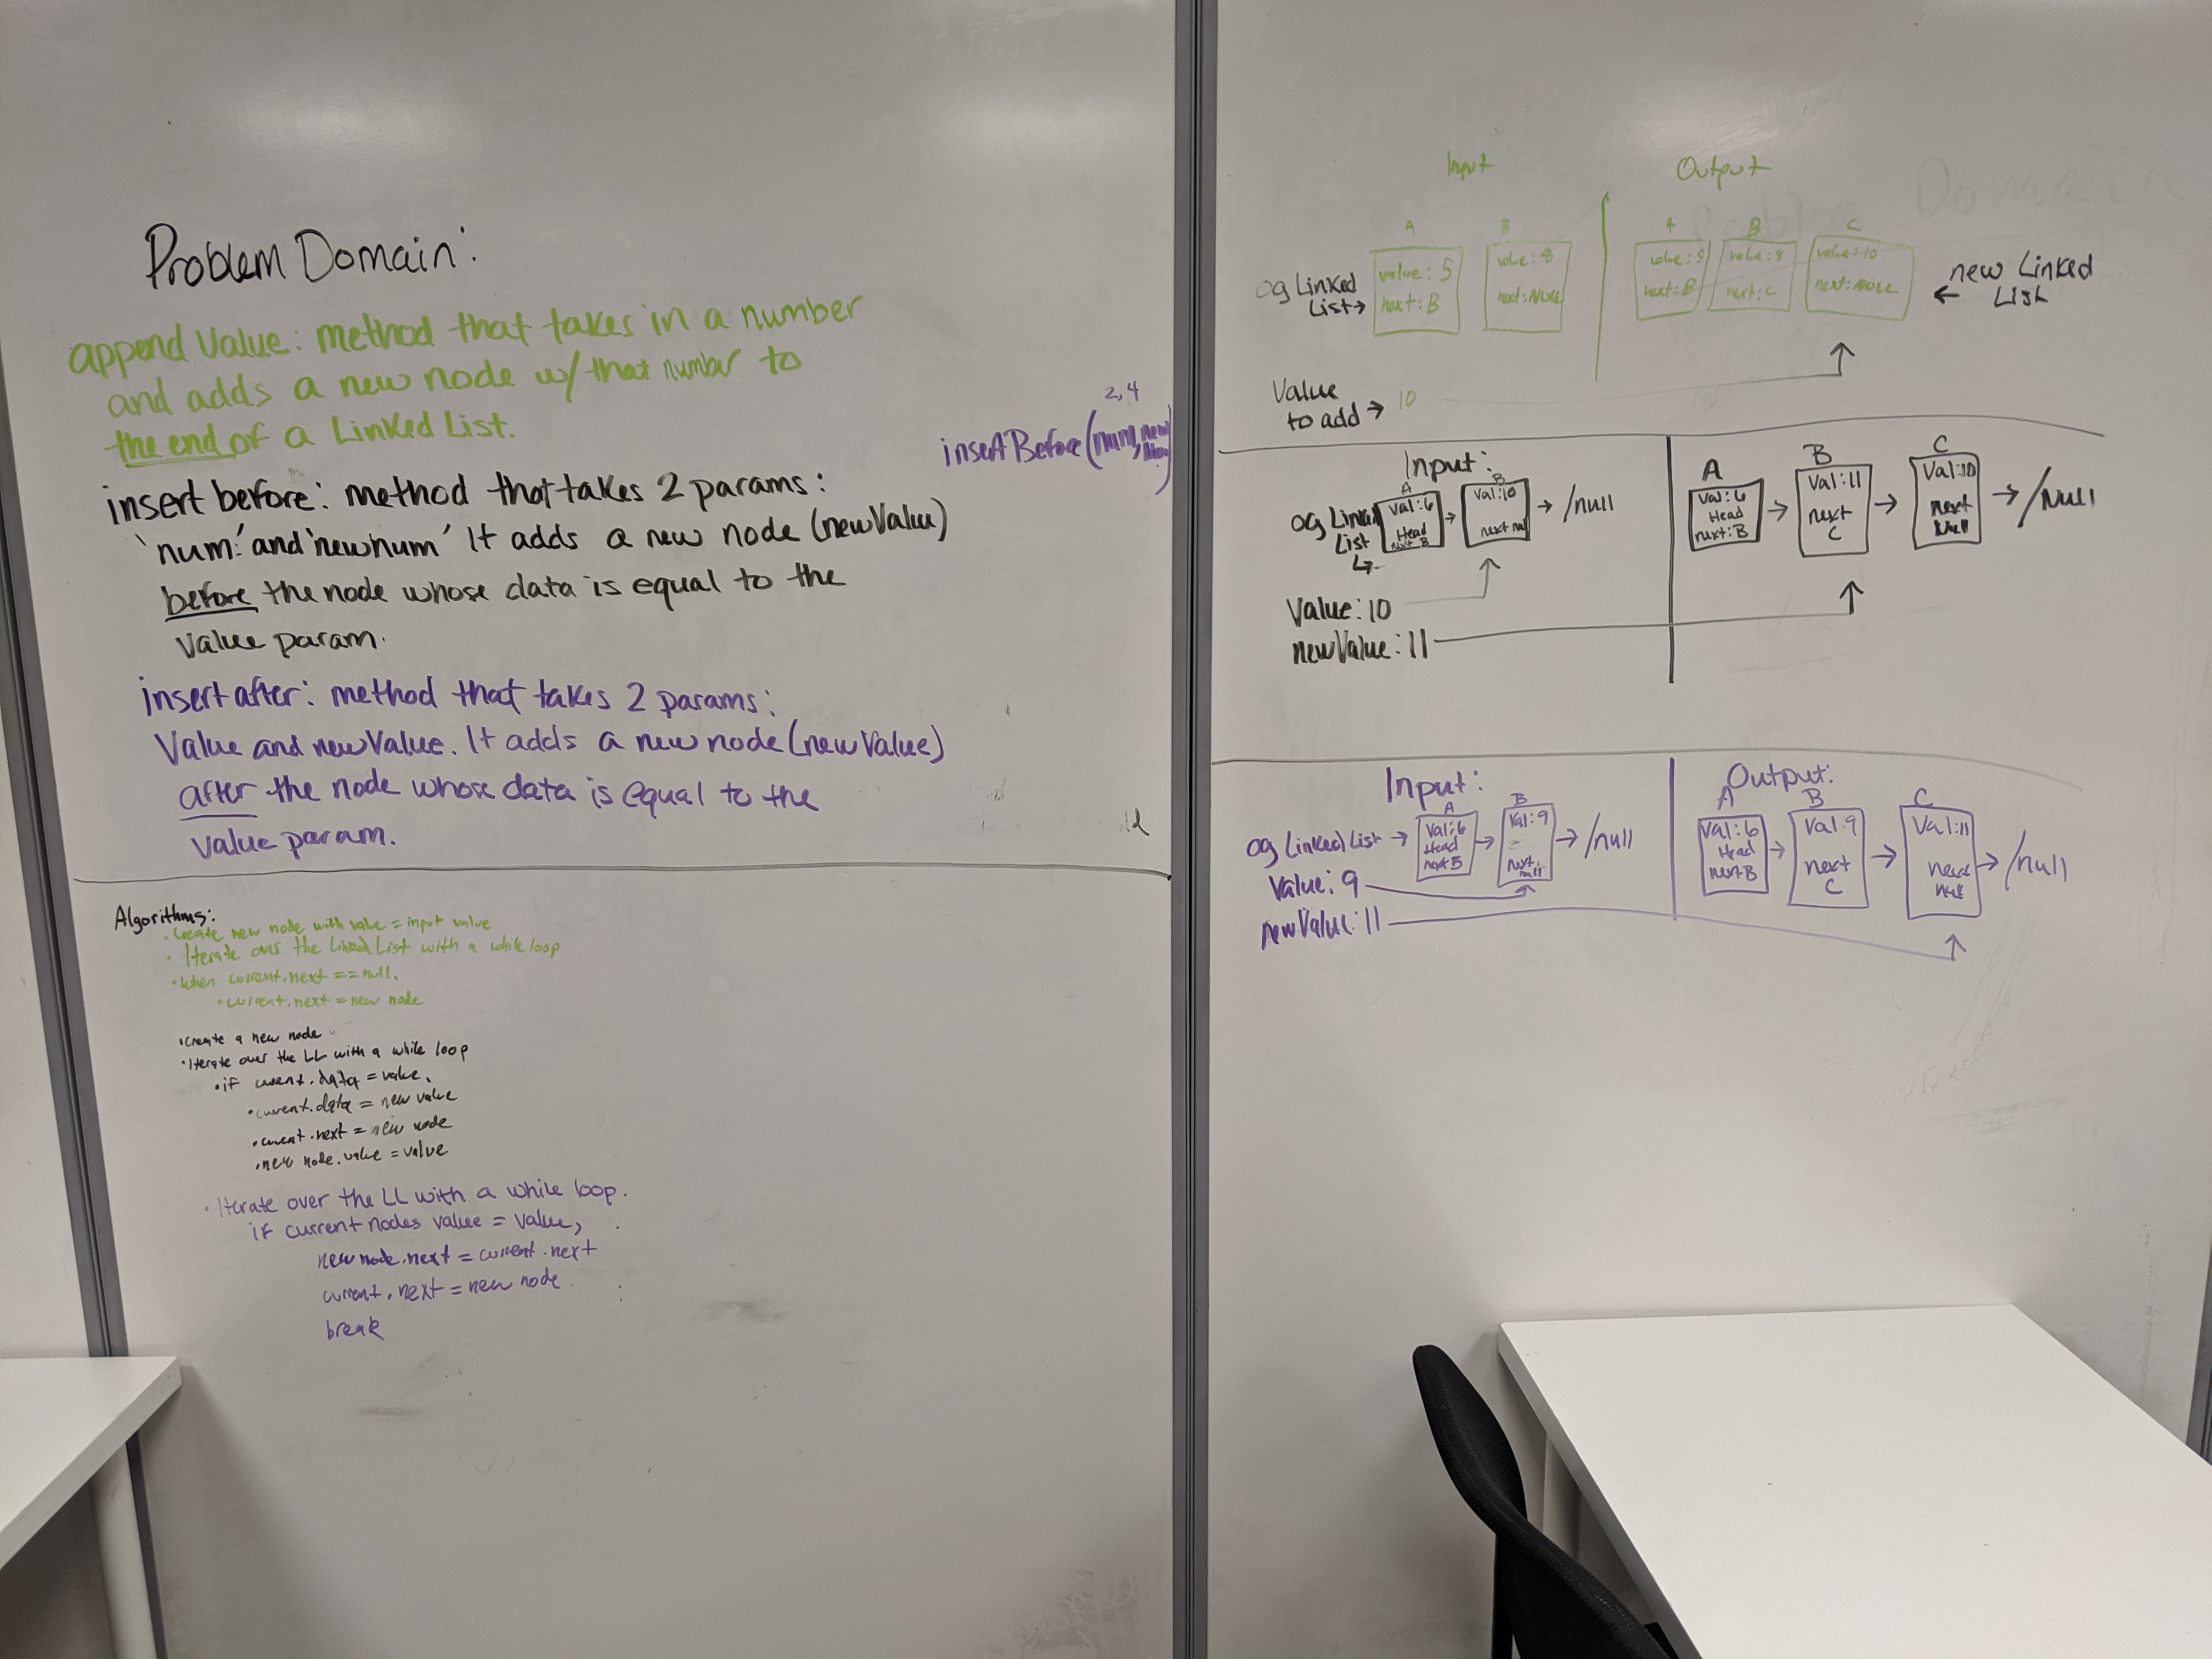 Problem Domain:
append Value: method that takes in a number
and adds a new node w/ that number to
the end of a Linked List.
2, 4
insertBefore(num, new
insert before: method that takes 2 params:
'num' and 'newnum' It adds a new node (newValue)
before the node whose data is equal to the
Value param.
insert after: method that takes 2 params:
Value and newValue. It adds a new node (newValue)
after the node whose data is equal to the
value param.
Algorithms:
• Create new node with value = input value
• Iterate over the Linked List with a while loop
• When current.next == null,
• current.next = new node
• Create a new node
• Iterate over the LL with a while loop
• if current.data = value,
• current.data = new value
• current.next = new node
• new node.value = value
• Iterate over the LL with a while loop.
if current nodes value = value,
new node.next = current.next
current.next = new node
break
Input
Output
A
B
A
B
C
og Linked
List →
value: 5
next: B
value: 8
next: NULL
value: 5
next: B
value: 8
next: C
value: 10
next: NULL
← new Linked
List
Value
to add → 10
Input:
og Linked
List
A
Val: 6
Head
next B
→
B
Val: 10
next null
→ /null
A
Val: 6
Head
next: B
→
B
Val: 11
next
C
→
C
Val: 10
next
Null
→ /Null
Value: 10
newValue: 11
Input:
Output:
og Linked List →
A
Val: 6
Head
next B
→
B
Val: 9
next:
null
→ /null
A
Val: 6
Head
next B
→
B
Val: 9
next
C
→
C
Val: 11
next
null
→ /null
Value: 9
newValue: 11